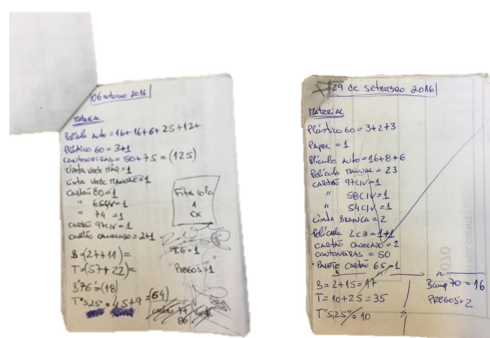 06 outubro 2016
Material
Película auto = 16+16+6+25+12+
Plástico 60 = 3+1
cantoneiras = 50+75 = (125)
cinta verde mão = 1
cinta verde = 1
cartão 80 = 1
" 65 = 1
" 74 = 1
cartão 97 = 1
cartão canelado = 2+1
B = (2+11) =
T = (57+22) =
B 76 = (18)
T = 45+9 = (64)
Fita cola
1
cx
T.6 = 1
Pregos = 1
29 de setembro 2016
Material
Plástico 60 = 3+2+3
Papel = 1
Película auto = 16+8+6
Película manual = 23
cartão 97CIV = 1
" 58CIV = 1
" 54CIV = 1
cinta branca = 2
Película 2CB = 1+1
cartão canelado = 2
cantoneiras = 50
cartão 65 = 1
B = 2+15 = 17
T = 10+25 = 35
T "5,25" = 10
70 = 16
Pregos = 2